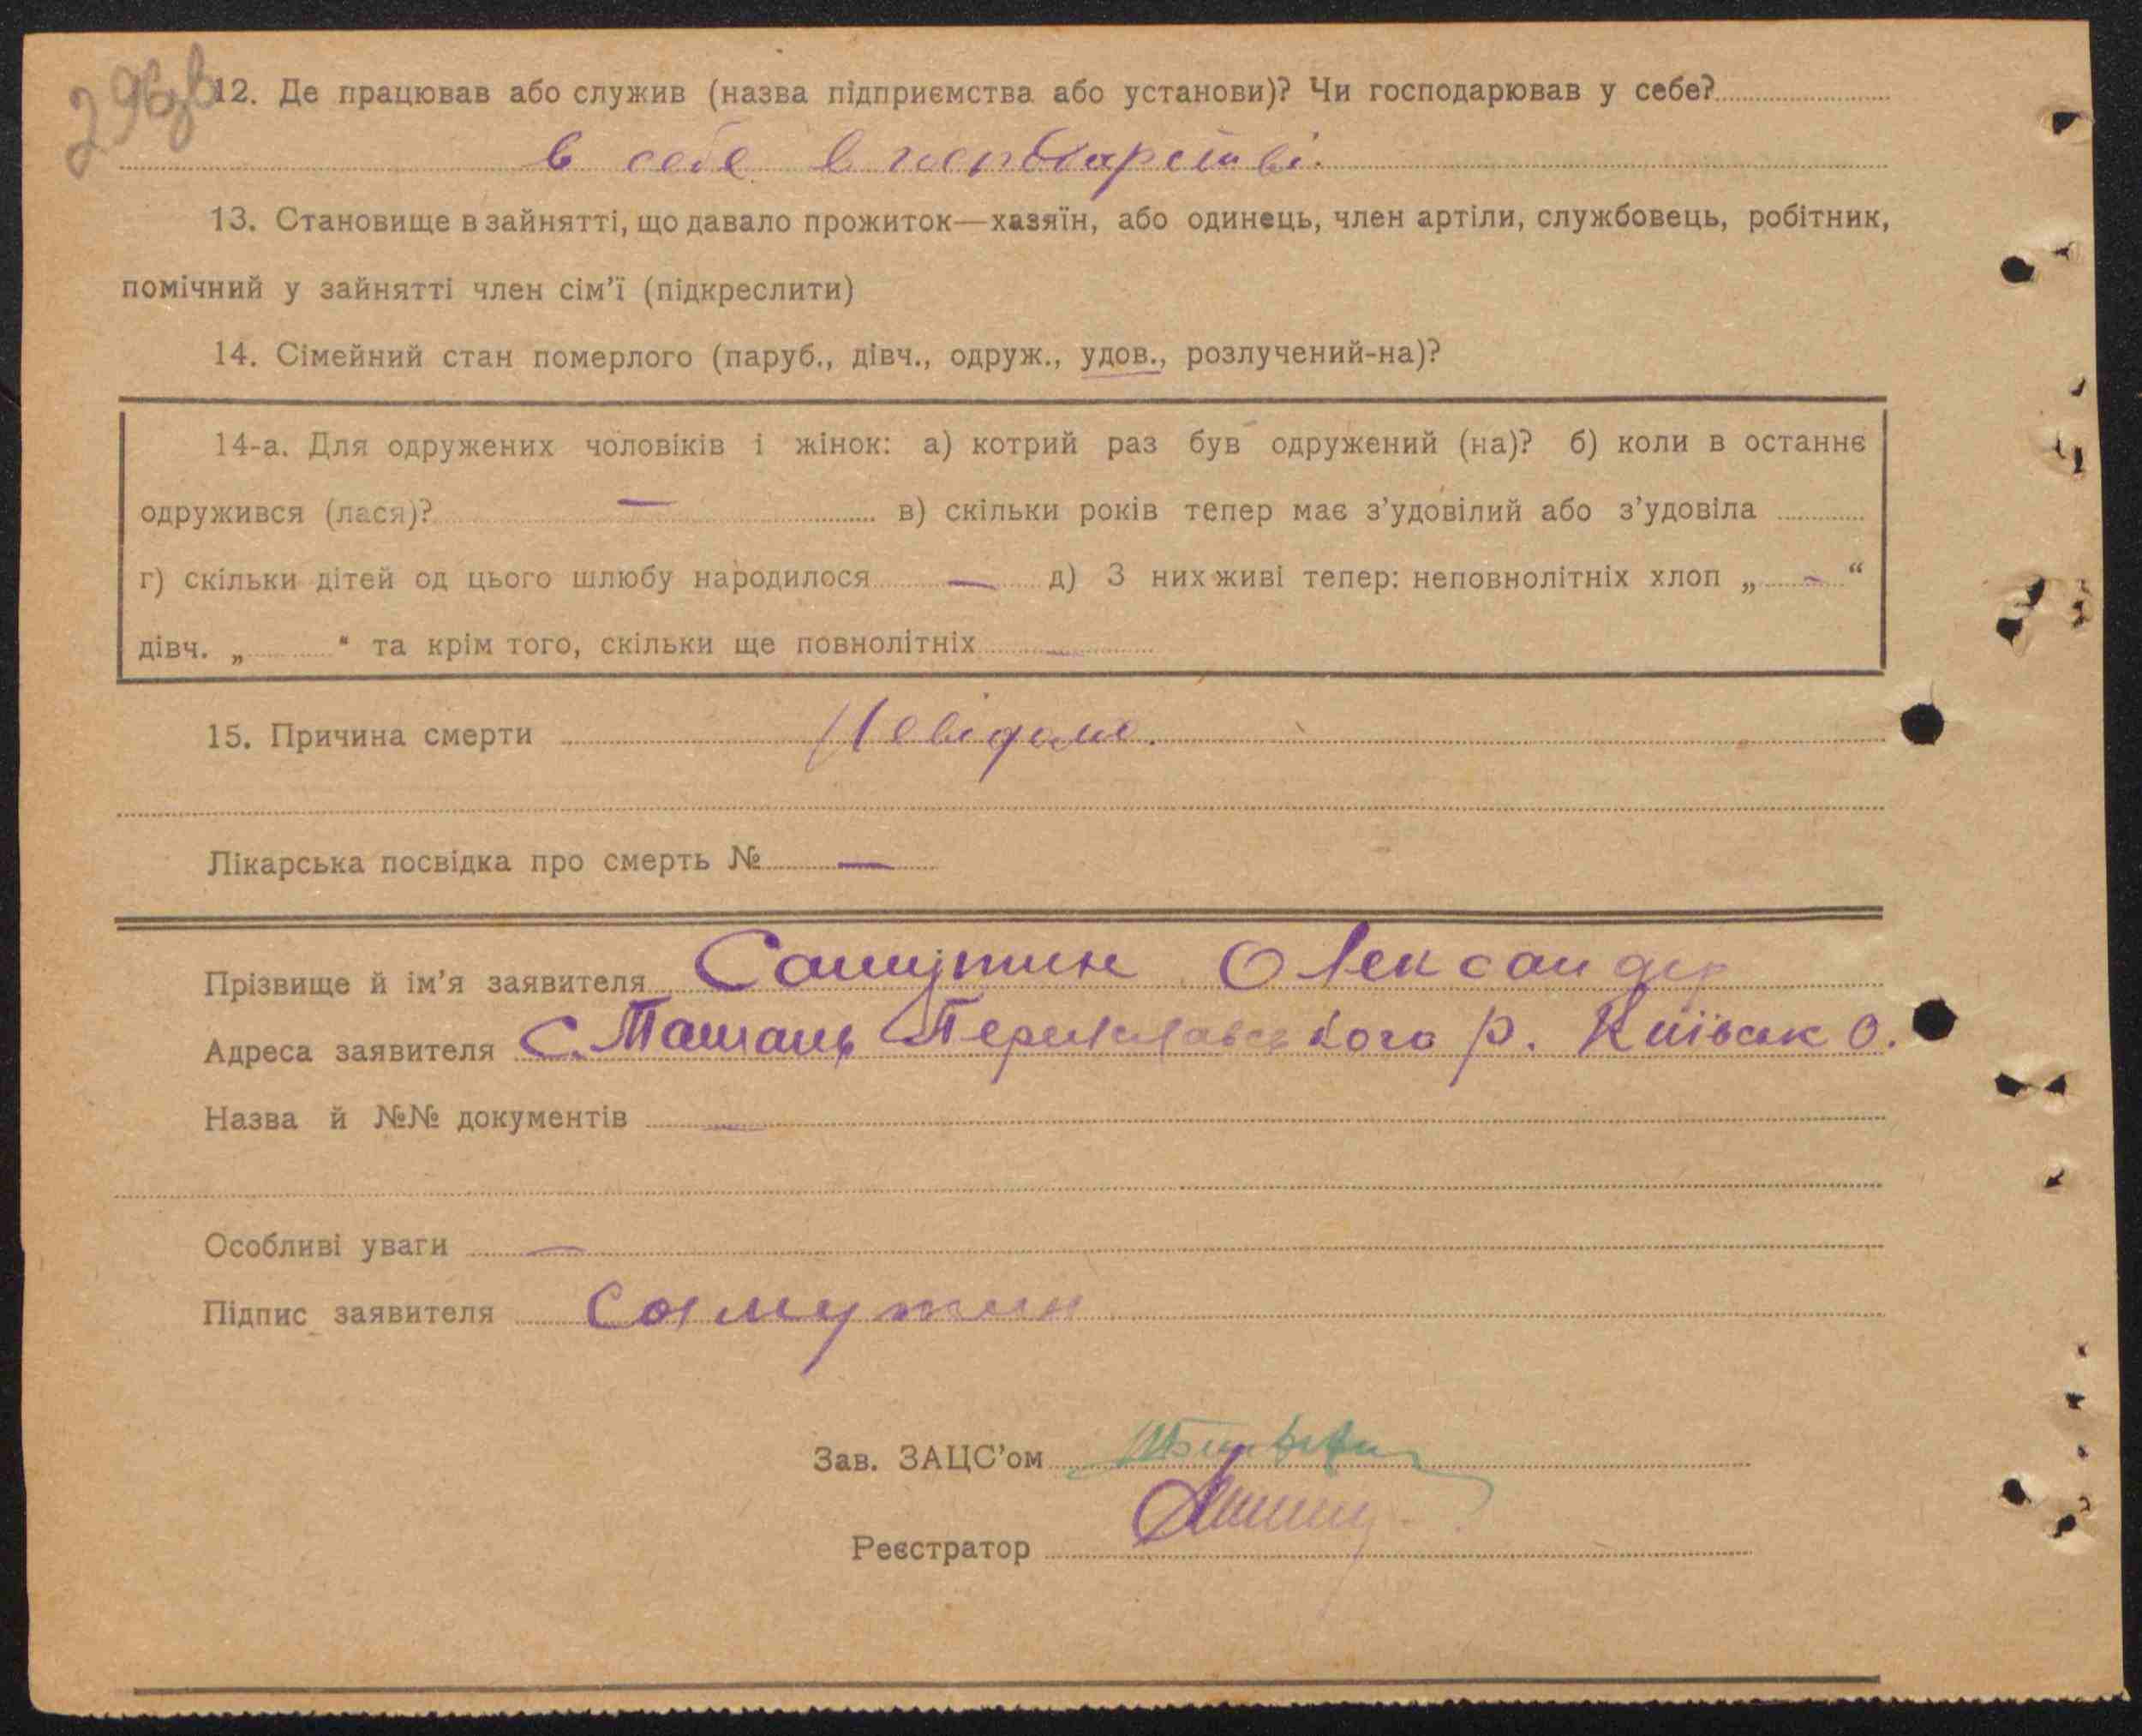 296зв
12. Де працював або служив (назва підприємства або установи)? Чи господарював у себе?
в себе в господарстві.
13. Становище в зайнятті, що давало прожиток—хазяїн, або одинець, член артіли, службовець, робітник,
помічний у зайнятті член сім'ї (підкреслити)
14. Сімейний стан померлого (паруб., дівч., одруж., удов., розлучений-на)?
14-а. Для одружених чоловіків і жінок: а) котрий раз був одружений (на)? б) коли в останнє
одружився (лася)? — в) скільки років тепер має з'удовілий або з'удовіла
г) скільки дітей од цього шлюбу народилося — д) З них живі тепер: неповнолітніх хлоп „ - “
дівч. „ “ та крім того, скільки ще повнолітніх —
15. Причина смерти Невідоме.
Лікарська посвідка про смерть № —
Прізвище й ім'я заявителя Сашутин Олександер
Адреса заявителя С. Ташань Переяславського р. Київськ О.
Назва й №№ документів —
Особливі уваги —
Підпис заявителя Сашутин
Зав. ЗАЦС'ом
Реєстратор